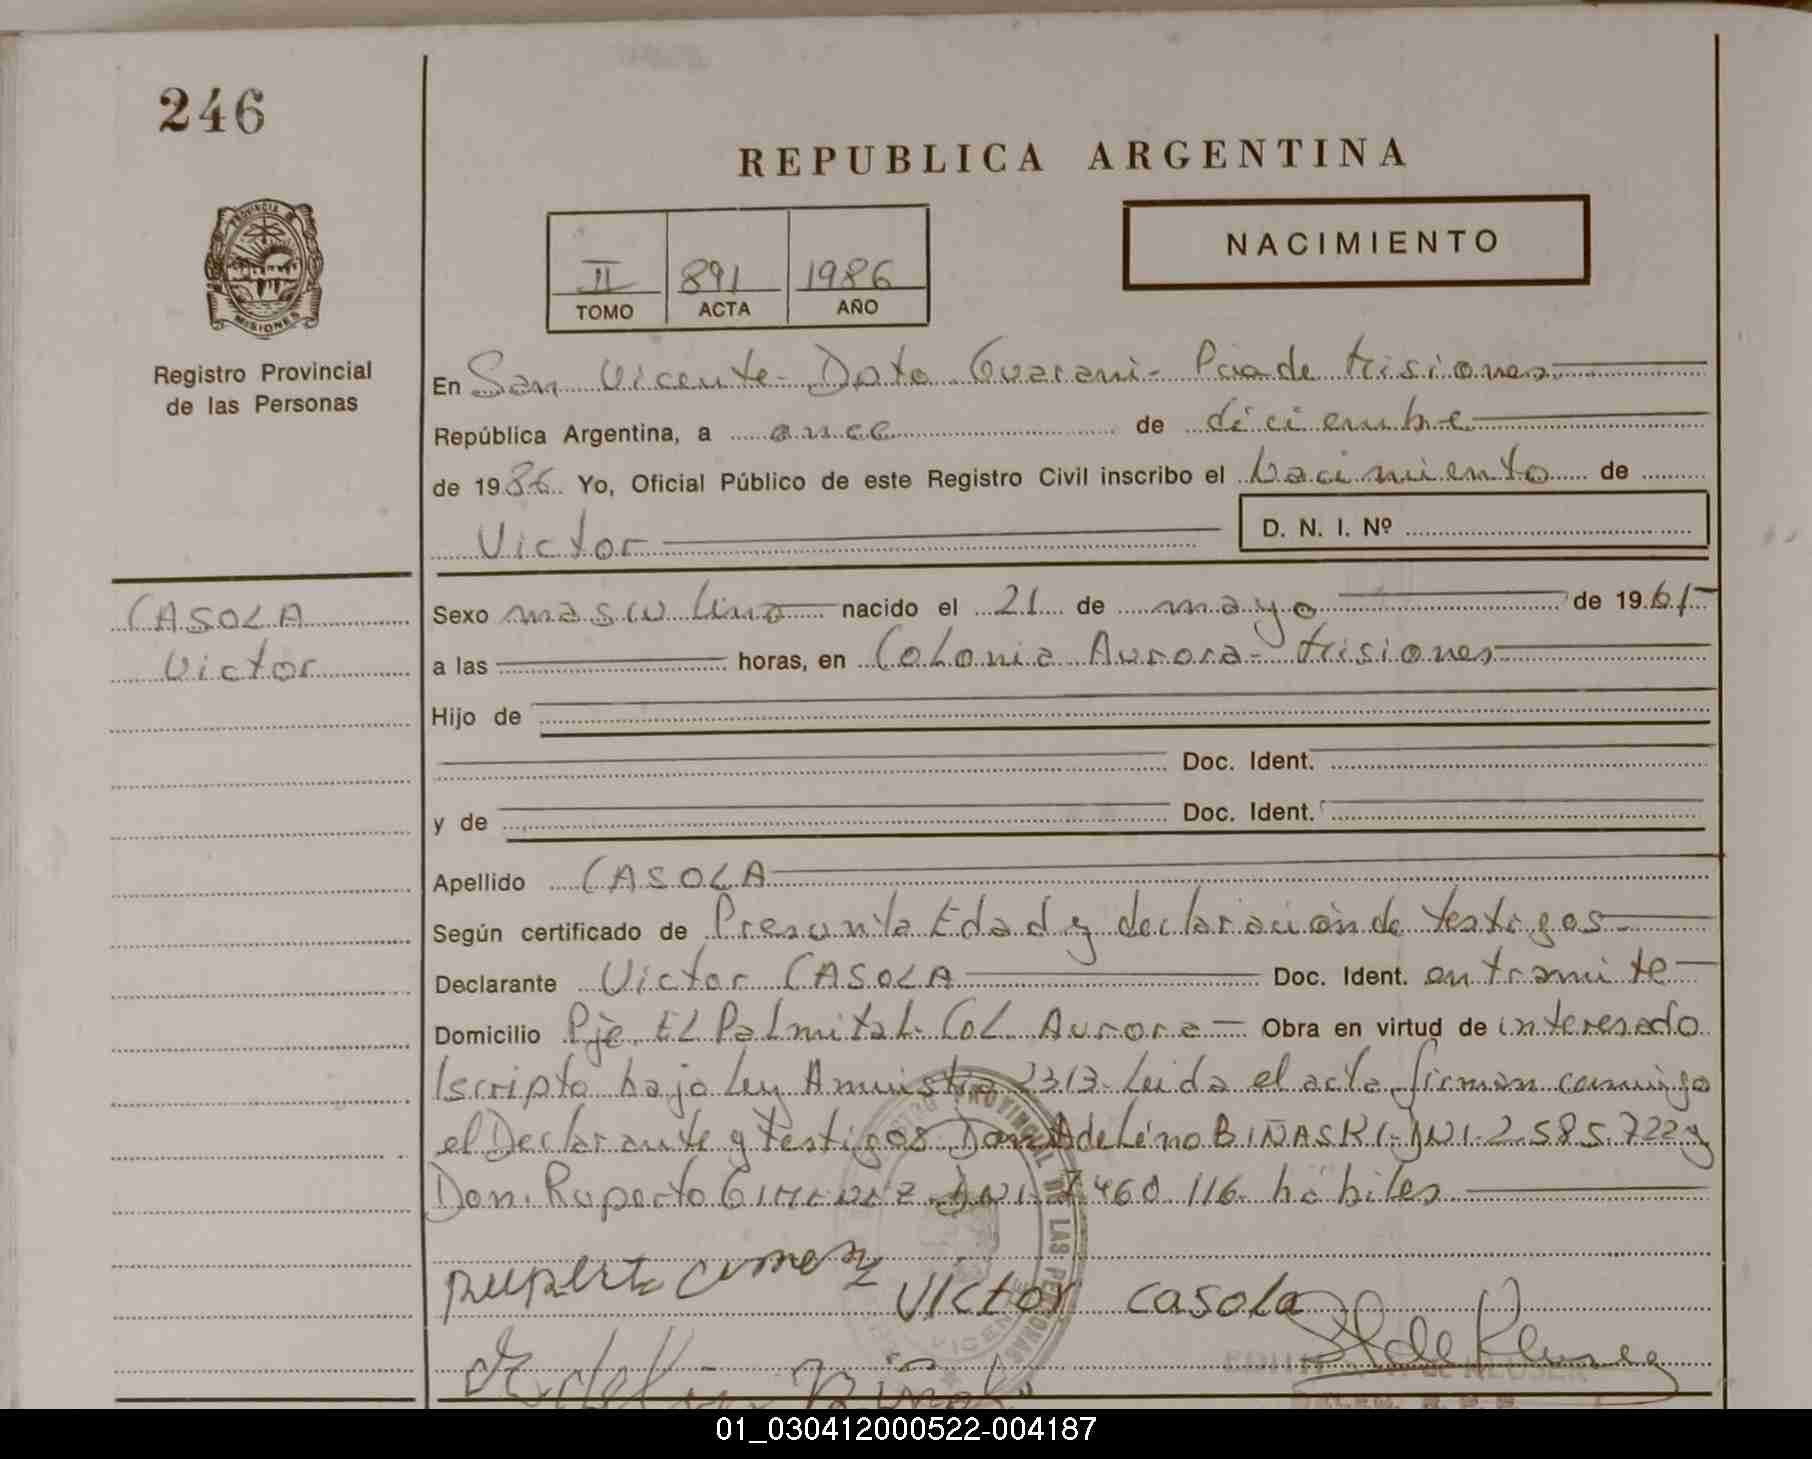 246
REPUBLICA ARGENTINA
PROVINCIA DE
MISIONES
Registro Provincial
de las Personas
II 891 1986
TOMO ACTA AÑO
NACIMIENTO
En San Vicente - Dpto Guarani - Pcia de Misiones
República Argentina, a once de diciembre
de 1986 Yo, Oficial Público de este Registro Civil inscribo el Nacimiento de
Victor D. N. I. Nº
CASOLA
Victor
Sexo masculino nacido el 21 de mayo de 1961
a las horas, en Colonia Aurora - Misiones
Hijo de
Doc. Ident.
y de Doc. Ident.
Apellido CASOLA
Según certificado de Presunta Edad y declaración de testigos
Declarante Victor CASOLA Doc. Ident. en tramite
Domicilio Pje El Palmital - Col Aurora - Obra en virtud de interesado
Iscripto bajo Ley Amnistia 2313 - Leida el acta firman conmigo
el Declarante y testigos Don Adelino BIÑASKI - DNI - 2.585.722 y
Don Ruperto GIMENEZ DNI 7.460.116 hábiles
Victor casola
01_030412000522-004187